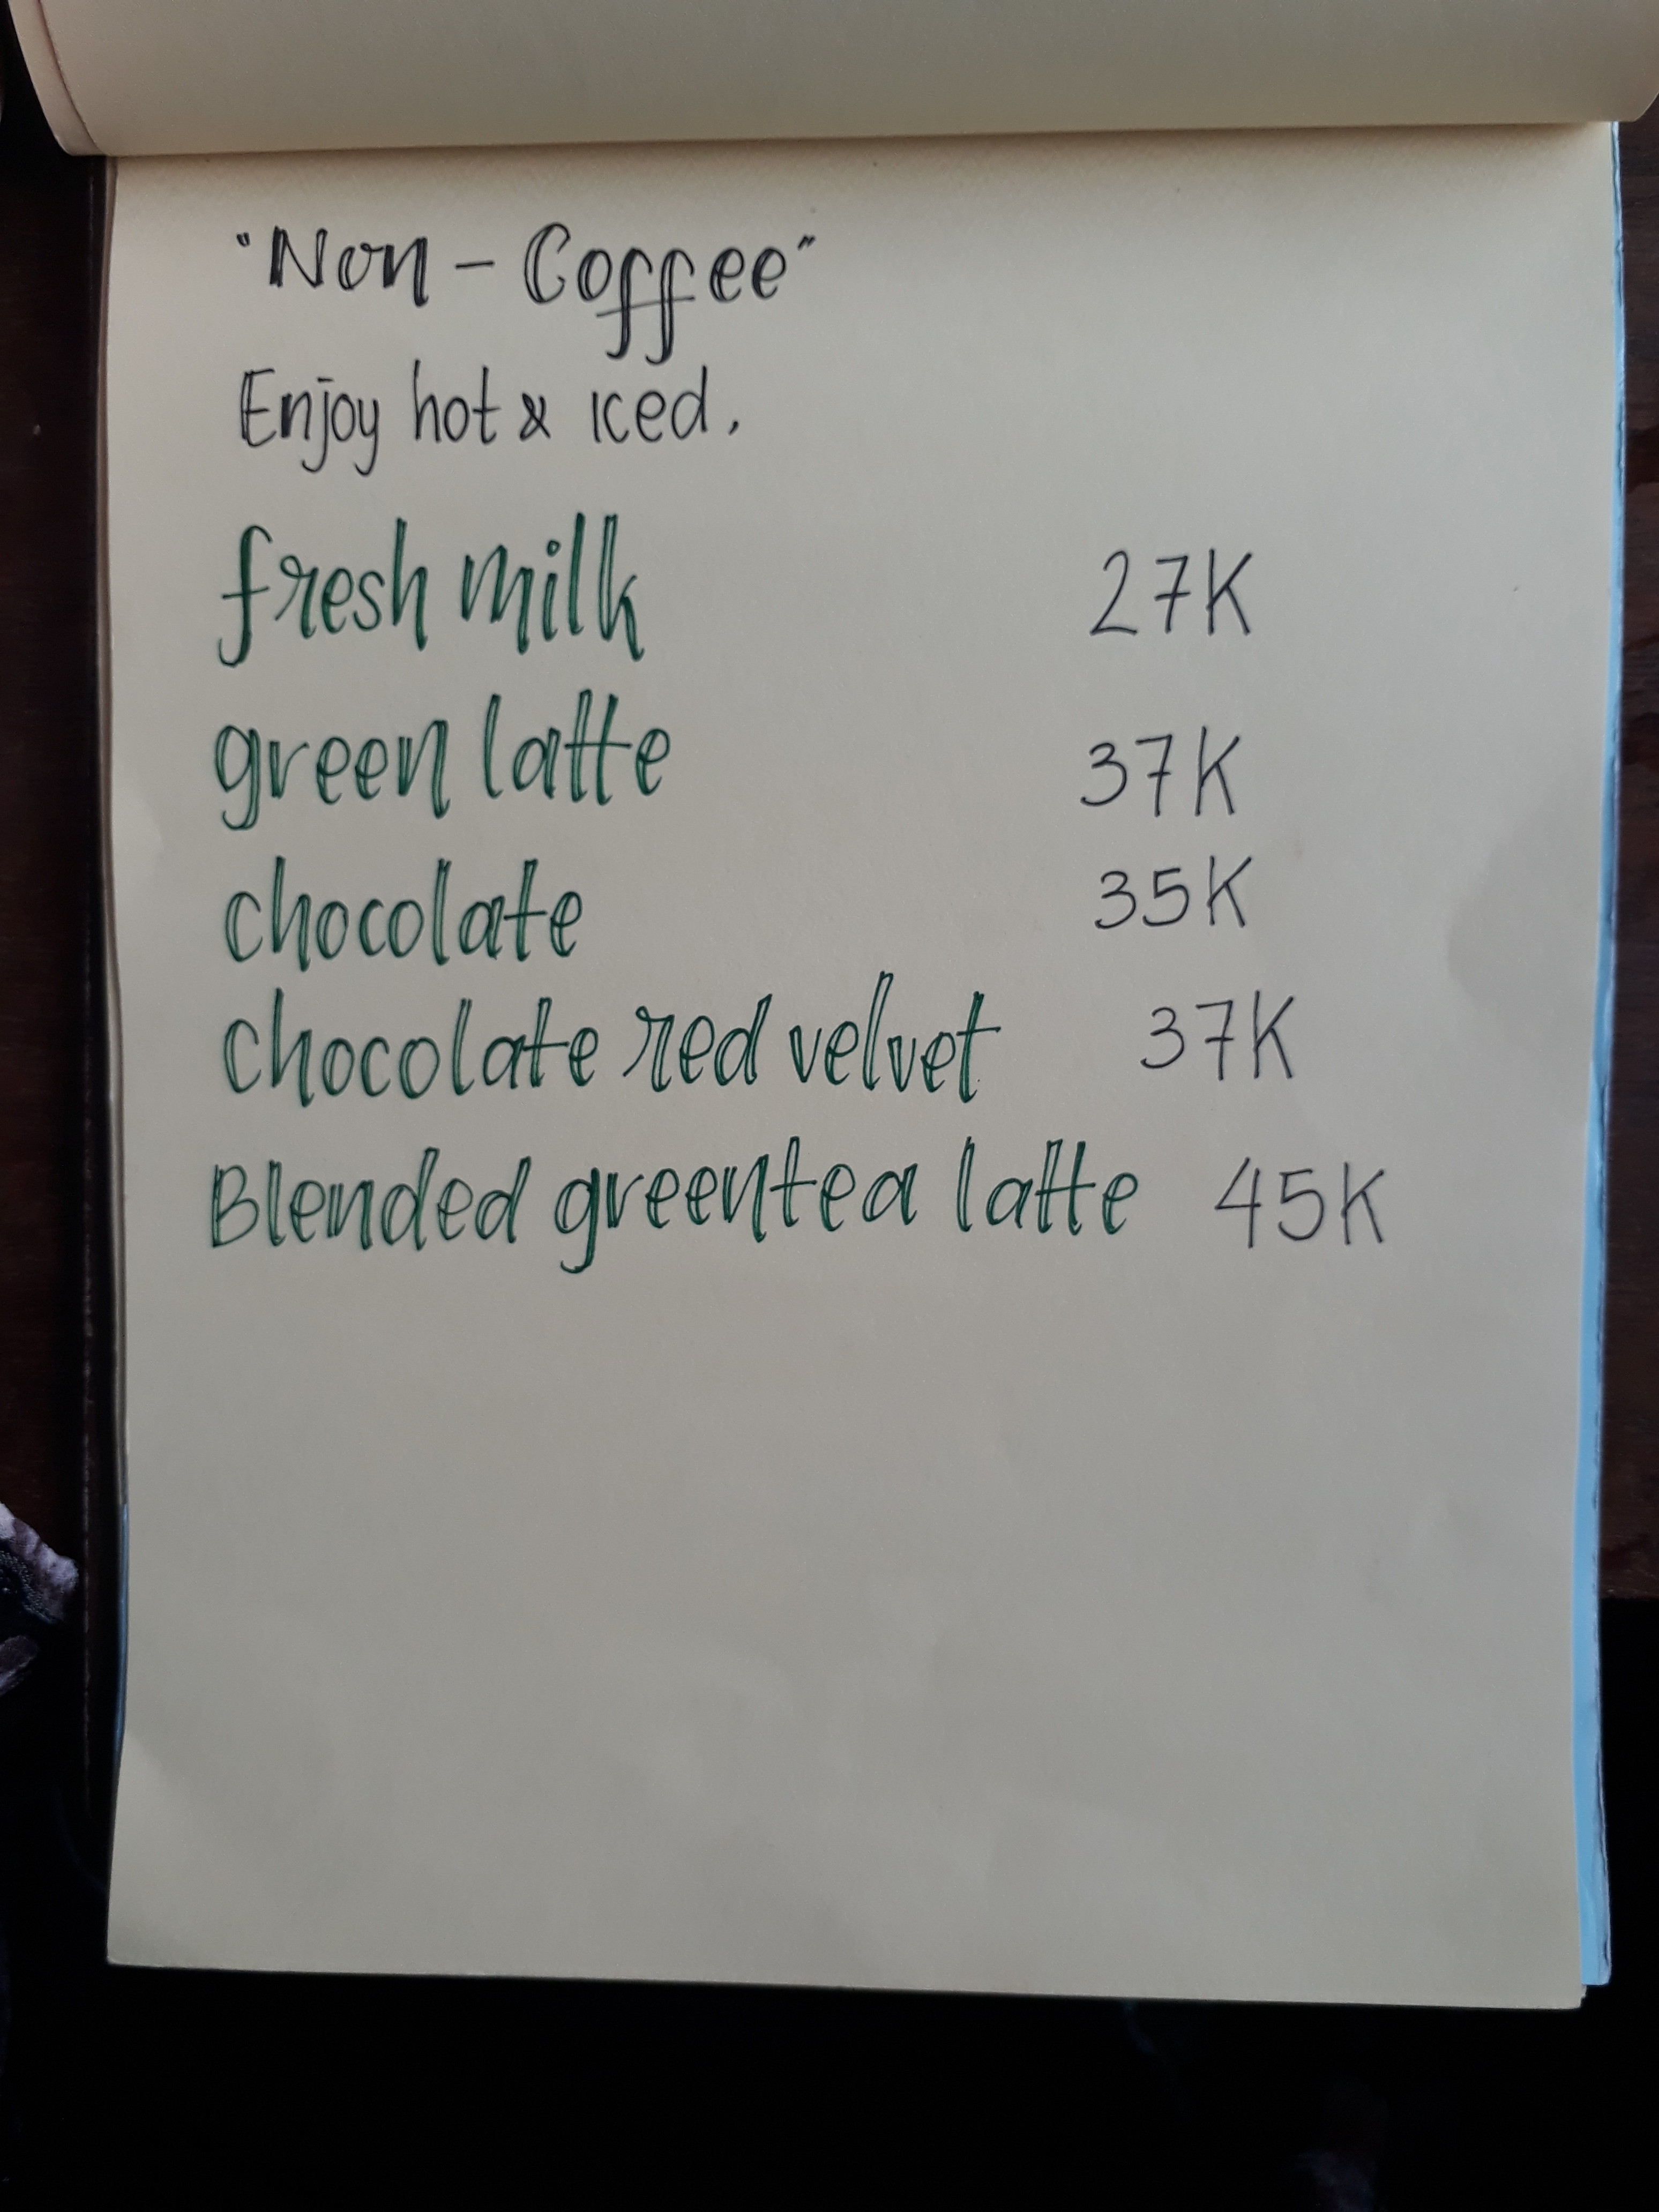 "Non - Coffee"
Enjoy hot & iced.
fresh milk 27K
green latte 37K
chocolate 35K
chocolate red velvet 37K
Blended greentea latte 45K